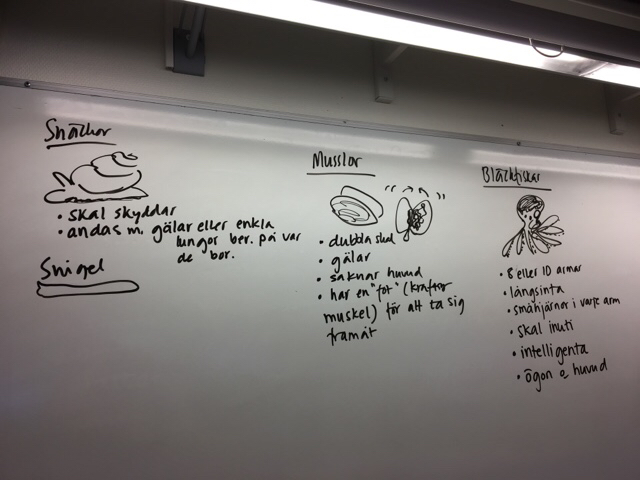 Snäckor
• skal skyddar
• andas m. gälar eller enkla
lungor ber. på var
de bor.
Snigel
Musslor
• dubbla skal
• gälar
• saknar huvud
• har en "fot" (kraftig
muskel) för att ta sig
framåt
Bläckfiskar
• 8 eller 10 armar
• långsinta
• småhjärnor i varje arm
• skal inuti
• intelligenta
• ögon o huvud